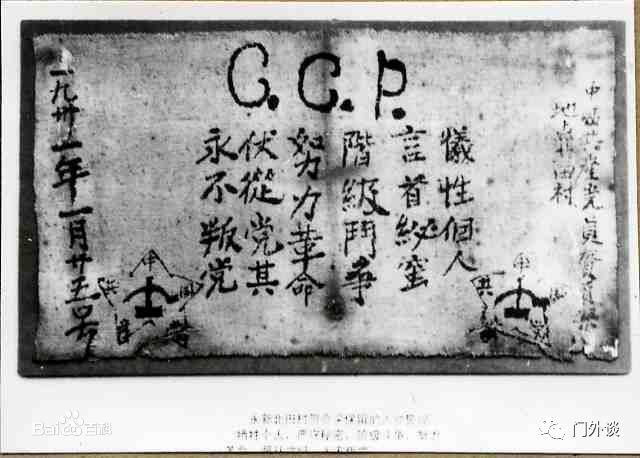 C.C.P.
中國共產党員
地點北田村
犧性個人
言首秘蜜
階級鬥争
努力革命
伏從党其
永不叛党
一九卅一年一月廿五号
中
共
中
共
Bai百科
门外谈